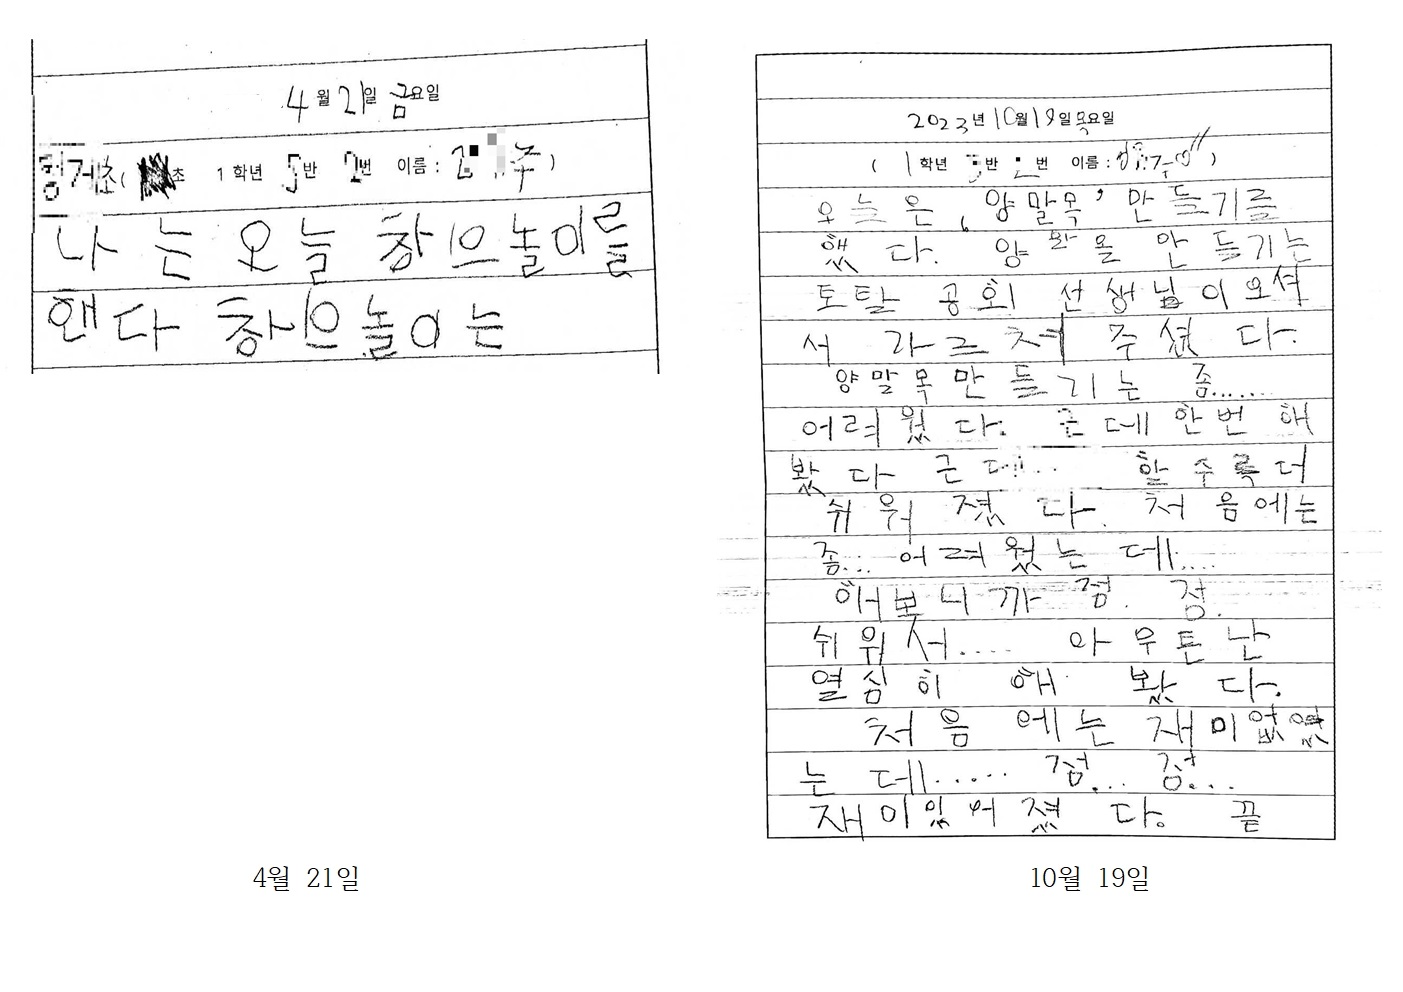 4월 21일 금요일
초 1학년 5반 2번 이름: 주 )
나는 오늘 창의놀이를
핸다 창의놀이는
4월 21일
2023년 10월 19일 목요일
( 1학년 반 번 이름: )
오늘은 '양말목' 만들기를
했다. 양말목 만들기는
토탈 공회 선생님이 오셔
서 가르쳐 주셨다.
양말목 만들기는 좀......
어려웠다. 근데 한번 해
봤다 근데... 할수록 더
쉬워졌다. 처음에는
좀... 어려웠는데....
해보니까 점. 점.
쉬워서.... 아무튼 난
열심히 해 봤다.
처음에는 재미없었
는데..... 점... 점...
재미있어졌다. 끝
10월 19일